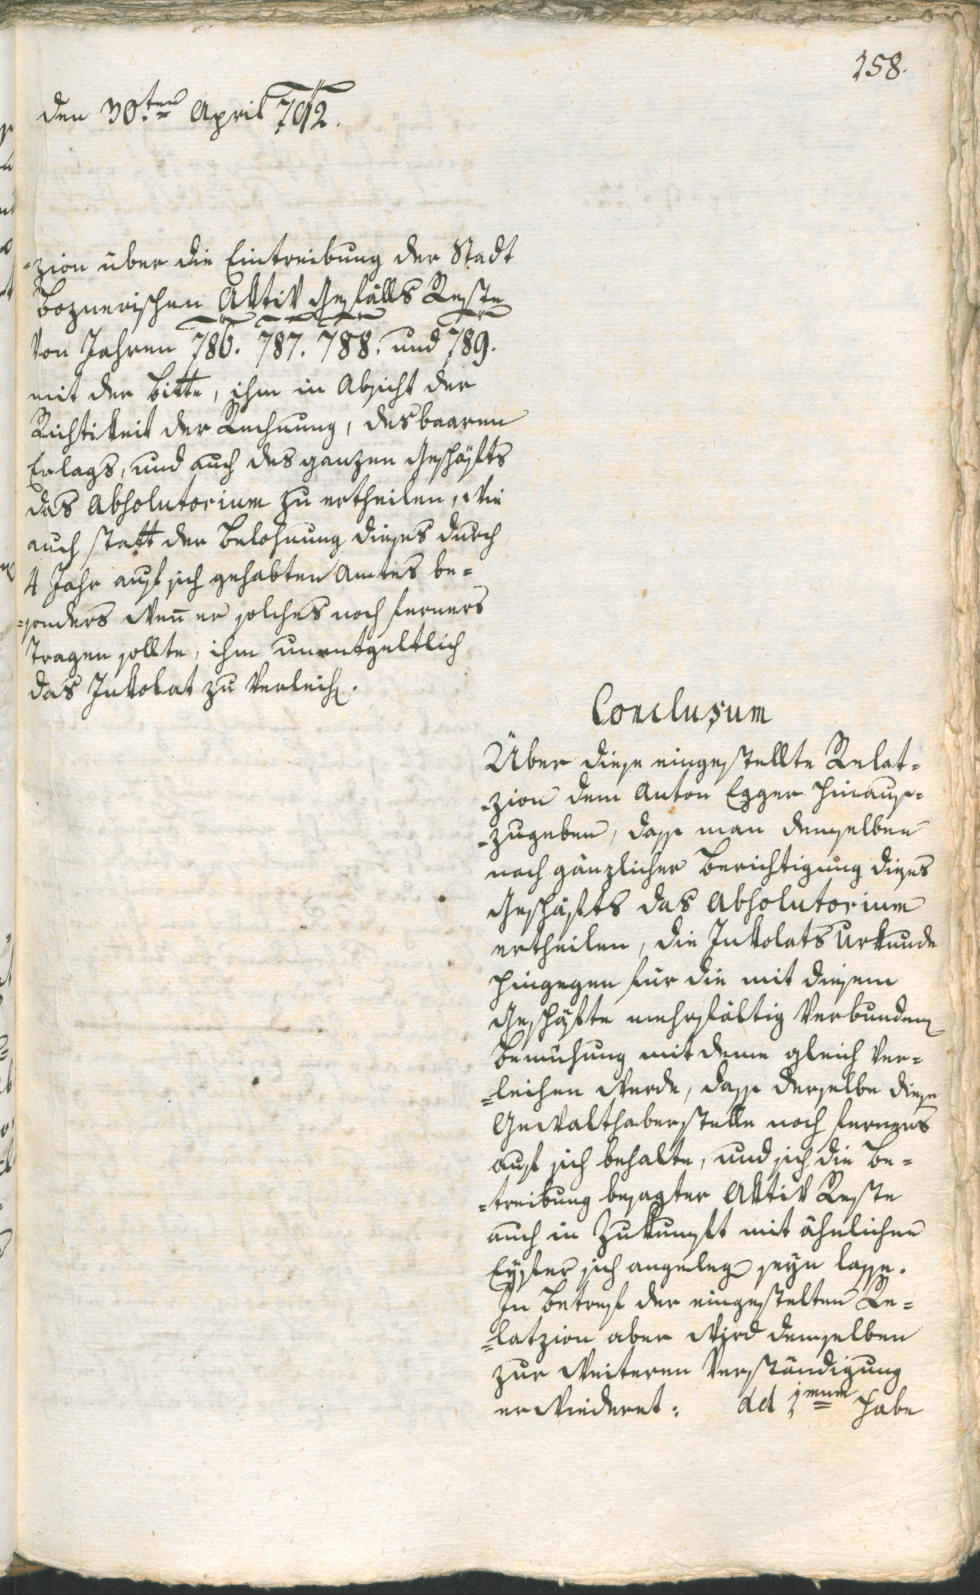 158.
den 30.ten April 792.
-zion über die Eintreibung der Stadt
Boznerischen Aktiv Gefälls Reste
von Jahren 786. 787. 788. und 789.
mit der bitte, ihm in Absicht der
Richtikeit der Rechnung, des baaren
Erlags, und auch des ganzen Geschäfts
das Absolutorium zu ertheilen, wie
auch statt der Belohnung dieses durch
4 Jahr auf sich gehabten Amtes be-
-sonders wen̄ er solches noch ferners
tragen sollte, ihm unentgeltlich
das Inkolat zu verleihen.
Conclusum
Über diese eingestellte Relat-
-zion dem Anton Egger hinaus-
-zugeben, dass man demselben
nach gänzlicher Berichtigung dieses
Geschäfts das Absolutorium
ertheilen, die Inkolats Urkunde
hingegen für die mit diesem
Geschäfte mehrfältig verbundene
Bemühung mit deme gleich ver-
-leihen werde, dass derselbe diese
Gewalthaberstelle noch ferners
auf sich behalte, und sich die Be-
-treibung besagter Aktiv Reste
auch in Zukunft mit ähnlichen
Eyfer sich angelegen seyn lasse.
In Betref der eingestelten Re-
-latzion aber wird demselben
zur weiteren Verständigung
erwiederet: ad 1mum habe